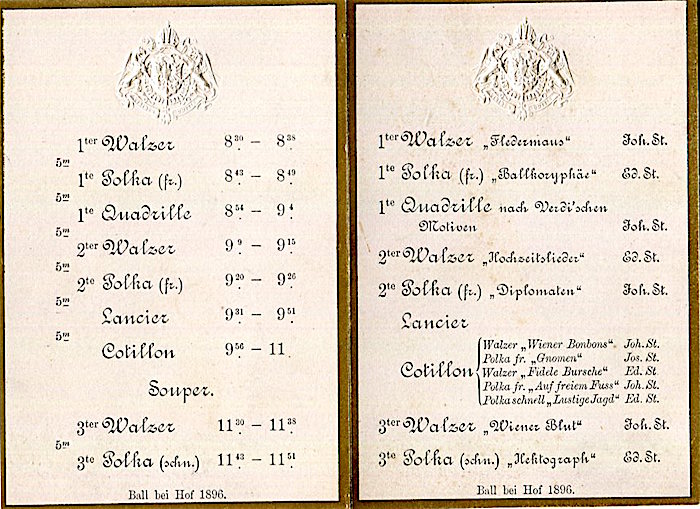 1ter Walzer 8.30 – 8.38
5m
1te Polka (fr.) 8.43 – 8.49
5m
1te Quadrille 8.54 – 9.4
5m
2ter Walzer 9.9 – 9.15
5m
2te Polka (fr.) 9.20 – 9.26
5m
Lancier 9.31 – 9.51
5m
Cotillon 9.56 – 11
Souper.
3ter Walzer 11.30 – 11.38
5m
3te Polka (schn.) 11.43 – 11.51
Ball bei Hof 1896.
1ter Walzer „Fledermaus“ Joh. St.
1te Polka (fr.) „Ballkoryphäe“ Ed. St.
1te Quadrille nach Verdi'schen
Motiven Joh. St.
2ter Walzer „Hochzeitslieder“ Ed. St.
2te Polka (fr.) „Diplomaten“ Joh. St.
Lancier
Cotillon
Walzer „Wiener Bonbons“. Joh. St.
Polka fr. „Gnomen“ Jos. St.
Walzer „Fidele Bursche“ Ed. St.
Polka fr. „Auf freiem Fuss“ Joh. St.
Polka schnell „Lustige Jagd“ Ed. St.
3ter Walzer „Wiener Blut“ Joh. St.
3te Polka (schn.) „Hektograph“ Ed. St.
Ball bei Hof 1896.